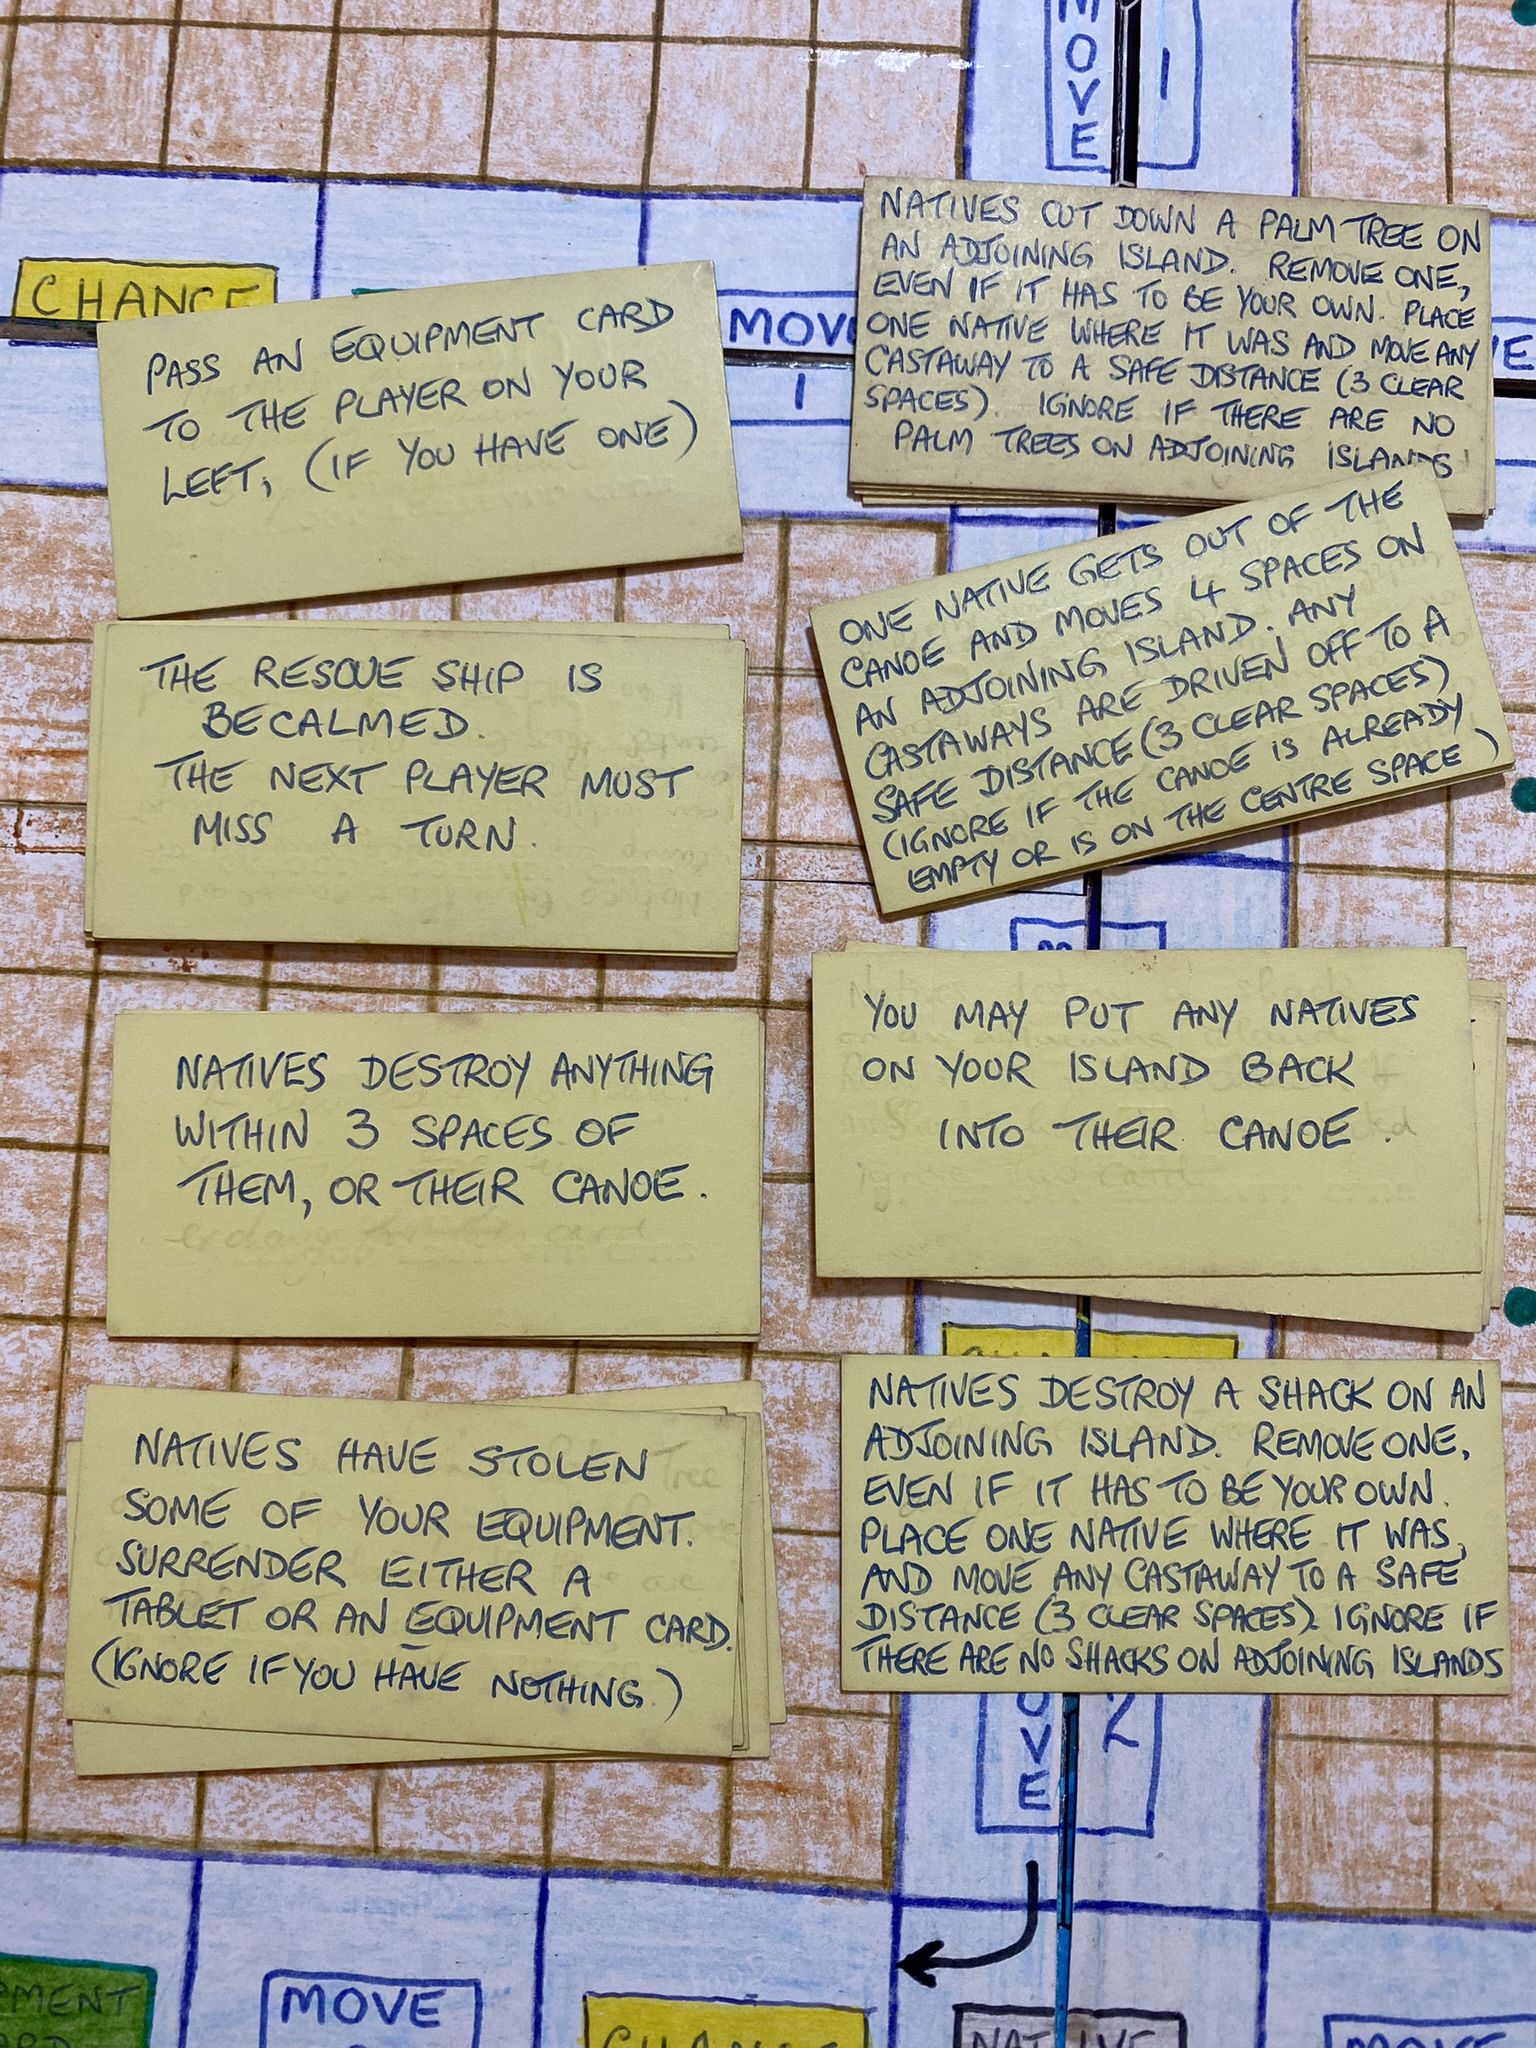 MOVE
1
CHANCE
MOV
1
VE
PASS AN EQUIPMENT CARD
TO THE PLAYER ON YOUR
LEFT, (IF YOU HAVE ONE)
NATIVES CUT DOWN A PALM TREE ON
AN ADJOINING ISLAND. REMOVE ONE,
EVEN IF IT HAS TO BE YOUR OWN. PLACE
ONE NATIVE WHERE IT WAS AND MOVE ANY
CASTAWAY TO A SAFE DISTANCE (3 CLEAR
SPACES). IGNORE IF THERE ARE NO
PALM TREES ON ADJOINING ISLANDS
THE RESCUE SHIP IS
BECALMED.
THE NEXT PLAYER MUST
MISS A TURN.
ONE NATIVE GETS OUT OF THE
CANOE AND MOVES 4 SPACES ON
AN ADJOINING ISLAND. ANY
CASTAWAYS ARE DRIVEN OFF TO A
SAFE DISTANCE (3 CLEAR SPACES)
(IGNORE IF THE CANOE IS ALREADY
EMPTY OR IS ON THE CENTRE SPACE)
NATIVES DESTROY ANYTHING
WITHIN 3 SPACES OF
THEM, OR THEIR CANOE.
YOU MAY PUT ANY NATIVES
ON YOUR ISLAND BACK
INTO THEIR CANOE.
NATIVES HAVE STOLEN
SOME OF YOUR EQUIPMENT.
SURRENDER EITHER A
TABLET OR AN EQUIPMENT CARD.
(IGNORE IF YOU HAVE NOTHING.)
NATIVES DESTROY A SHACK ON AN
ADJOINING ISLAND. REMOVE ONE,
EVEN IF IT HAS TO BE YOUR OWN.
PLACE ONE NATIVE WHERE IT WAS,
AND MOVE ANY CASTAWAY TO A SAFE
DISTANCE (3 CLEAR SPACES). IGNORE IF
THERE ARE NO SHACKS ON ADJOINING ISLANDS
OVE
2
PMENT
MOVE
CHANCE
NATIVE
MOVE